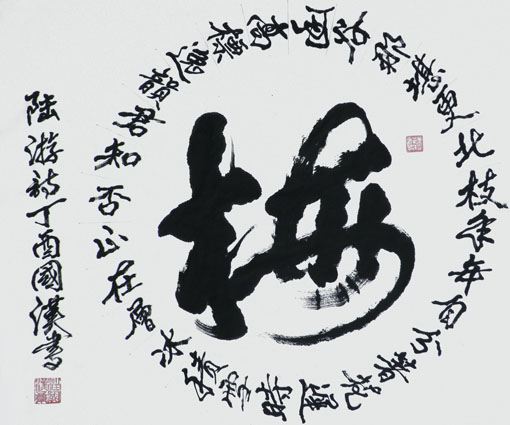 梅
幽谷那堪更北枝年年自分著花遲
高標逸韻君知否正在層冰積雪時
陸游詩丁酉國漢書